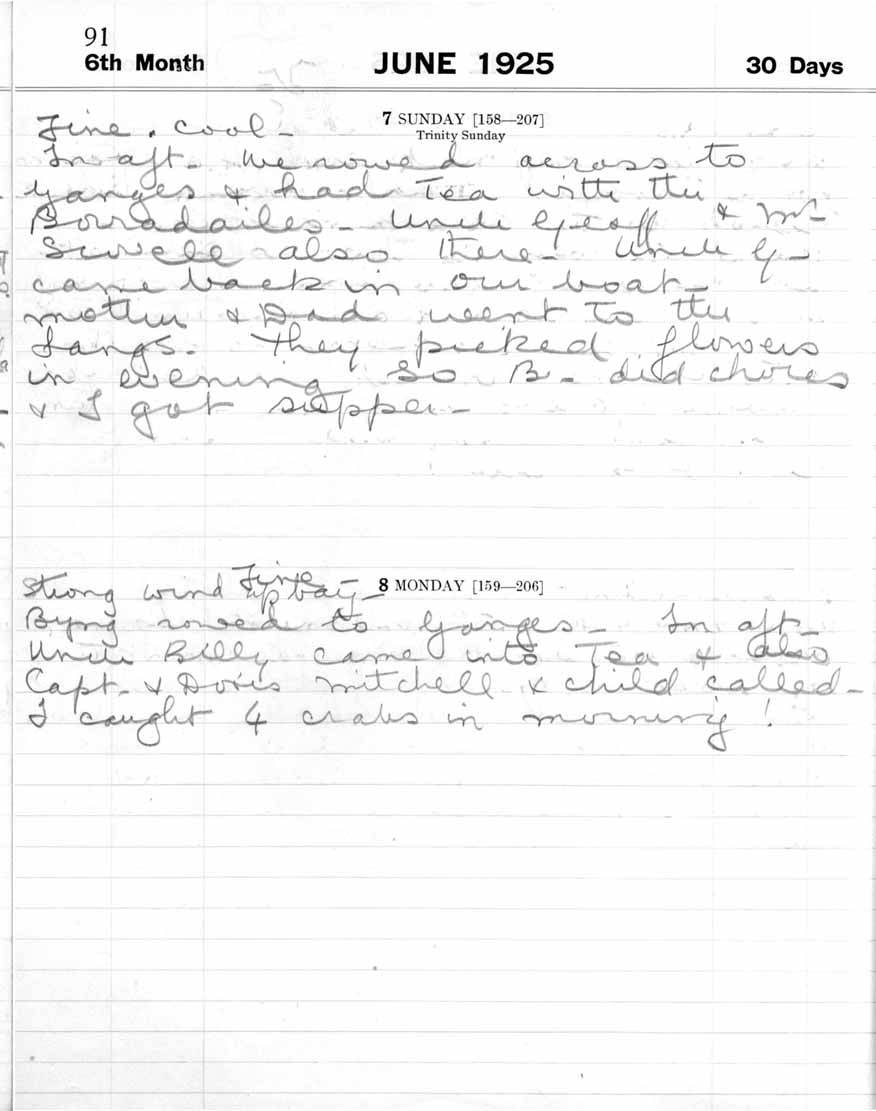 91
6th Month JUNE 1925 30 Days
7 SUNDAY [158—207]
Trinity Sunday
Fine. cool -
In aft. we rowed across to
Ganges & had Tea with the
Borradailes - Uncle Geoff & Mr
also there - Uncle G -
came back in our boat -
mother & Dad went to the
Langs. They picked flowers
in evening so B - did chores
& I got supper -
8 MONDAY [159—206]
Fine
Strong wind up bay -
Byng rowed to Ganges - In aft -
Uncle Billy came into Tea & also
Capt. & Doris Mitchell & child called -
I caught 4 crabs in morning!